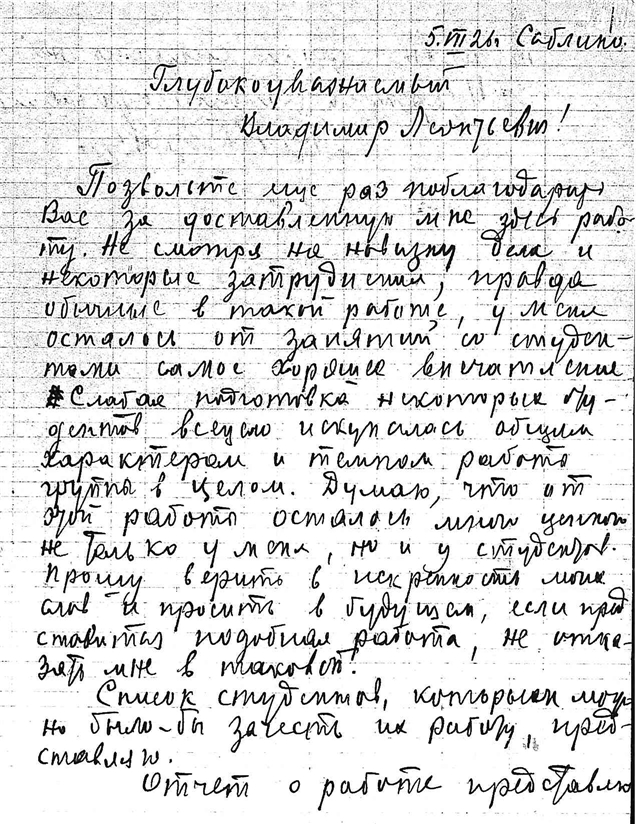 5.III 26. Саблино.
Глубокоуважаемый
Владимир Леонтьевич!
Позвольте еще раз поблагодарить
Вас за доставленную мне здесь рабо-
ту. Не смотря на новизну дела и
некоторые затруднения, правда
обычные в такой работе, у меня
осталось от занятий со студен-
тами самое хорошее впечатление
Слабая подготовка некоторых сту-
дентов всецело искупалась общим
характером и темпом работы
группы в целом. Думаю, что от
этой работы осталось много ценного
не только у меня, но и у студентов.
Прошу верить в искренность моих
слов и просить в будущем, если пред
ставится подобная работа, не отка-
зать мне в таковой!
Список студентов, которым мож-
но было-бы зачесть их работу, пред-
ставляю.
Отчет о работе представлю